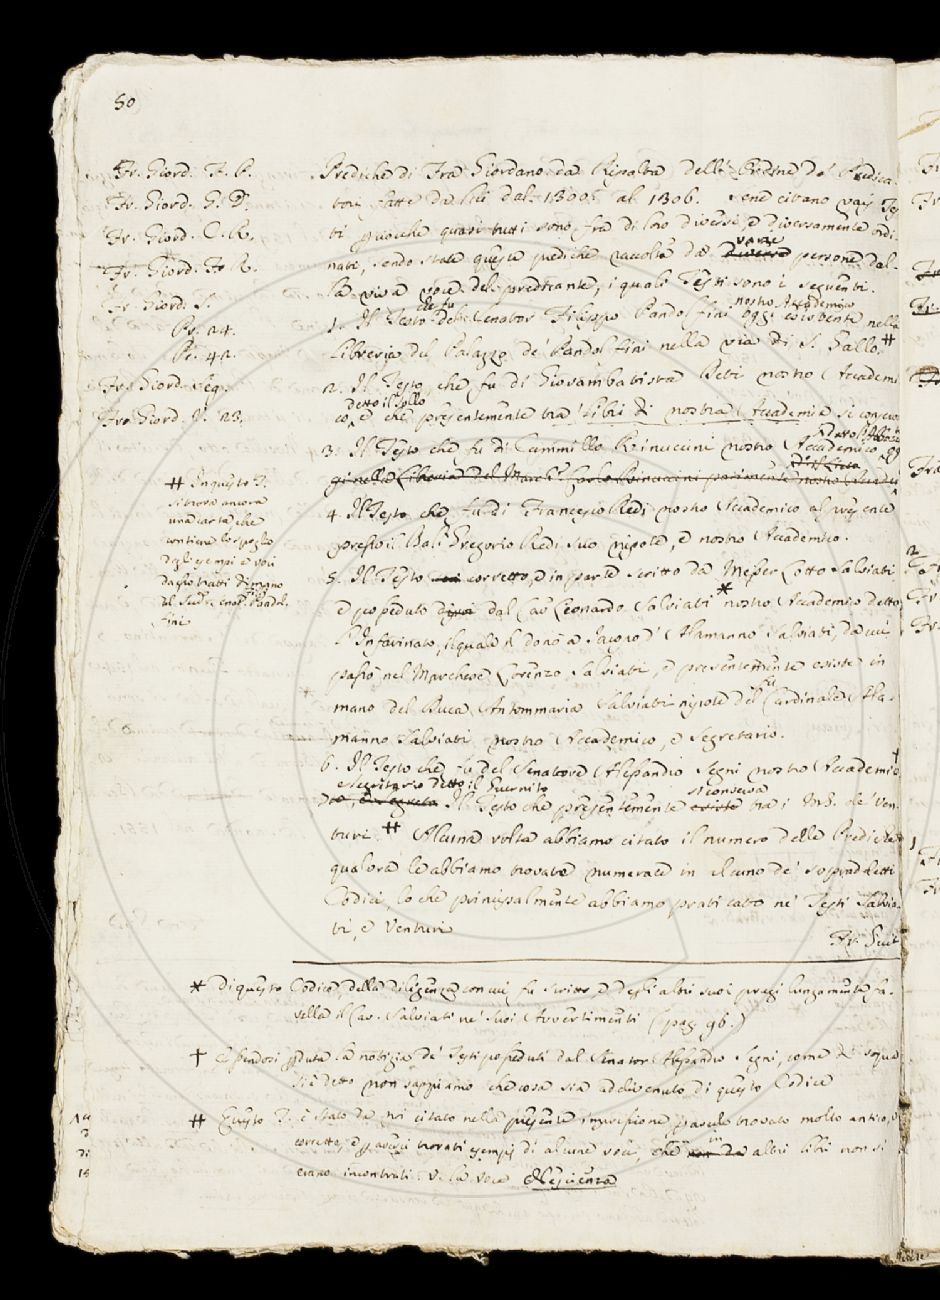 50
Fr. Giord. F. P.
Fr. Giord. G. D.
Fr. Giord. C. R.
Fr. Giord. Fo. R.
Fr. Giord. S.
Pr. 24.
Pr. 42.
Fr. Giord. seq.
Fr. Giord. V. 23.
Prediche di Fra Giordano da Ripalta dell'Ordine de' Predica-
tori fatte dal 1300. al 1306. sene citano varj Tes
ti quasi tutti sono fra di loro diversi, e diversamente ordi-
nati, sendo state queste prediche raccolte da diverse varie persone dal-
la viva voce del predicante, i quali Testi sono i seguenti.
1. Il Testo che fu del Senator Filippo Pandolfini nostro Accademico oggi esistente nella
Libreria del Palazzo de' Pandolfini nella via di S. Gallo. #
2. Il Testo che fu di Giovambatista Deti nostro Accademi
co, detto il Sollo e che presentemente tra' Libri di nostra Accademia si conserva
3. Il Testo che fu di Cammillo Rinuccini nostro Accademico
gi nella Libreria del March. Carlo Rinuccini parimente nostro Accade
4. Il Testo che fu di Francesco Redi nostro Accademico al presente
presso il Balì Gregorio Redi suo nipote, e nostro Accademico.
5. Il Testo corretto, e in parte scritto da Messer Lotto Salviati
e posseduto dal Cav. Leonardo Salviati * nostro Accademico detto
l'Infarinato, il quale il donò a Jacopo d'Alamanno Salviati, da cui
passò nel Marchese Lorenzo Salviati, e presentemente esiste in
mano del Duca Antommaria Salviati nipote del fu Cardinale Ala-
manno Salviati nostro Accademico, e Segretario.
6. Il Testo che fu del Senatore Alessandro Segni nostro Accademico †
Segretario detto il Guernito Il Testo che presentemente esiste si conserva tra i MS. de' Ven-
turi. # Alcuna volta abbiamo citato il numero delle Prediche
qualora le abbiamo trovate numerate in alcuno de' sopraddetti
Codici, lo che principalmente abbiamo praticato ne' Testi Salvia-
ti, e Venturi
# In questo T.
si trova ancora
una carta che
contiene lo spoglio
degli esempi e voci
da esso tratti di mano
del Sud. Senat. Pandol-
fini
* Di questo Codice, della diligenza con cui fu scritto, e degli altri suoi pregi lungamente fa-
vella il Cav. Salviati ne' suoi Avvertimenti (pag. 96.)
† Essendosi perduta la notizia de' Testi posseduti dal Senator Alessandro Segni, come di sopra
si è detto non sappiamo che cosa sia addivenuto di questo Codice
# Questo T. è stato da noi citato nella presente impressione per averlo trovato molto antico, e
corretto, e per avervi trovati esempi di alcune voci, che non da in altri libri non si
erano incontrati. V. la voce